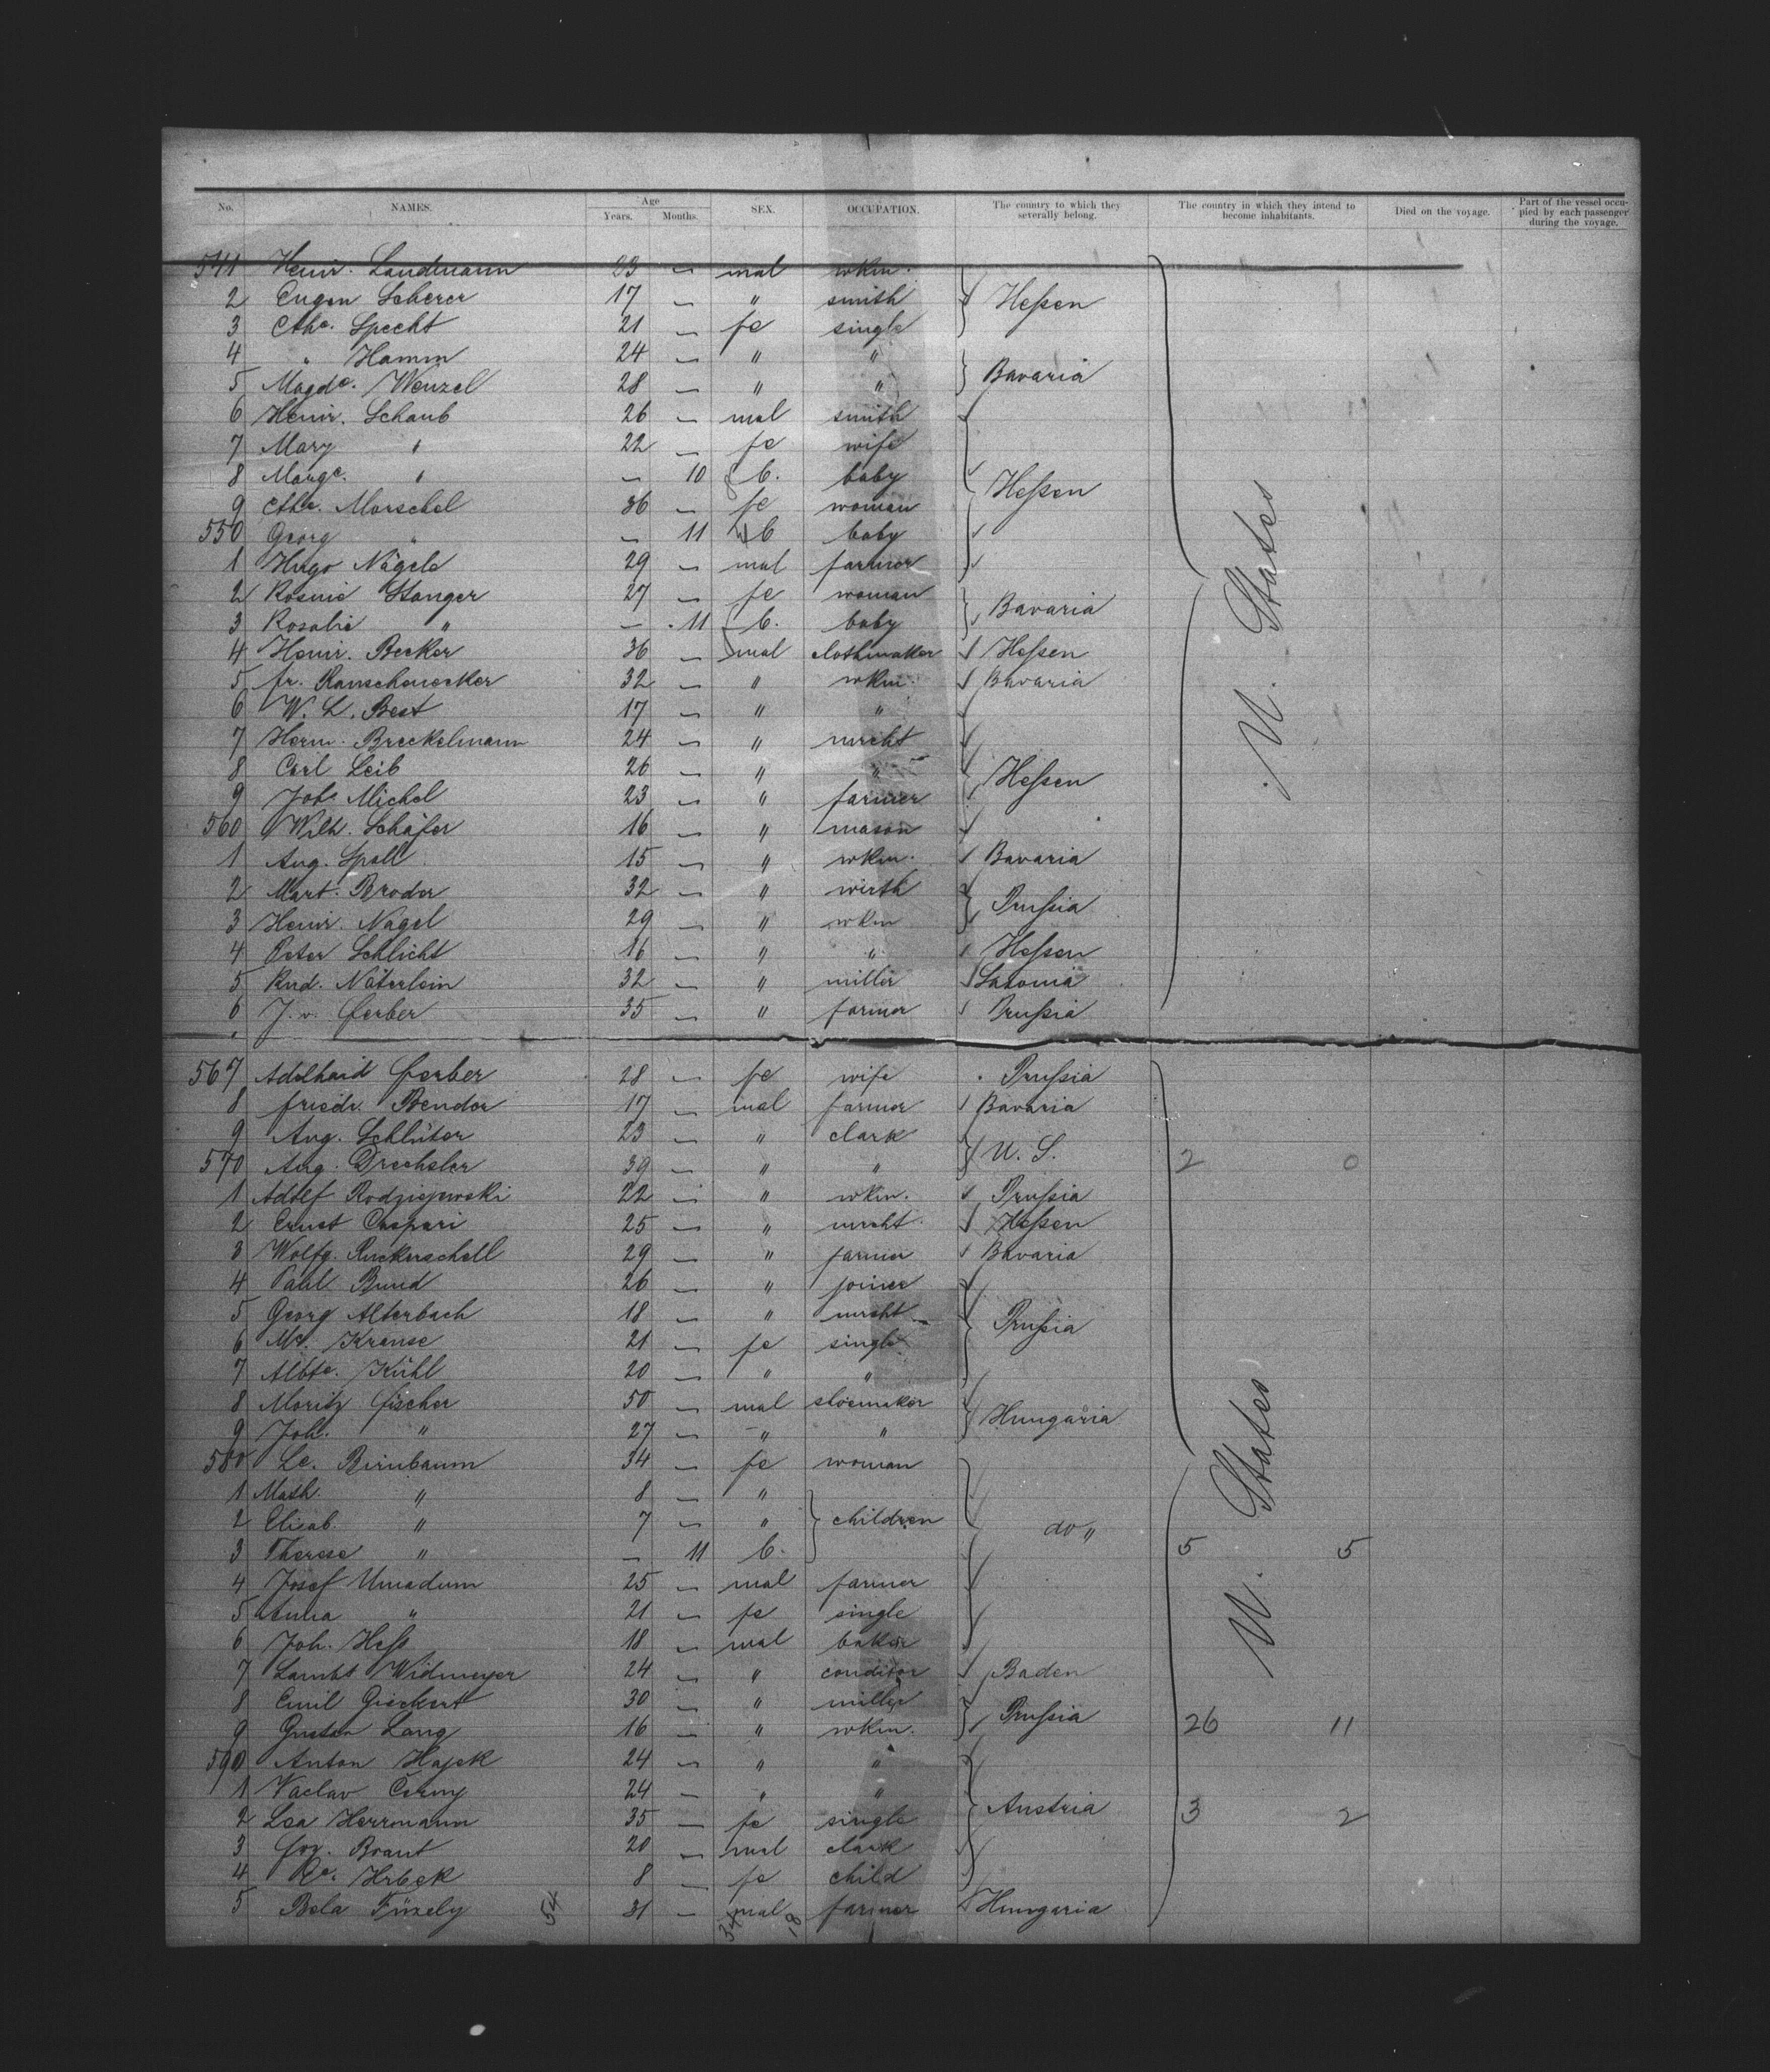 No. NAMES. Age Years. Months. SEX. OCCUPATION. The country to which they severally belong. The country in which they intend to become inhabitants. Died on the voyage. Part of the vessel occupied by each passenger during the voyage.
541 Heinr. Landmann 23 — mal wkm.
2 Eugen Scherer 17 — " smith Heßen
3 Cthe. Specht 21 — fe single
4 " Hamm 24 — " "
5 Magde. Wenzel 28 — " " Bavaria
6 Heinr. Schaub 26 — mal smith
7 Mary " 22 — fe wife
8 Marge. " — 10 b. baby
9 Cthe. Morschel 36 — fe woman Heßen
550 Georg " — 11 b baby
1 Hugo Nägele 29 — mal farmer
2 Rosine Stanger 27 — fe woman Bavaria
3 Rosalie " — 11 b. baby
4 Heinr. Becker 36 — mal clothmaker Heßen
5 fr. Rauschenecker 32 — " wkm. Bavaria
6 W. L. Best 17 — " "
7 Herm. Breckelmann 24 — " mrcht
8 Carl Leib 26 — " " Heßen
9 Johs Michel 23 — " farmer
560 Wilh. Schäfer 16 — " mason
1 Aug. Spall 15 — " wkm. Bavaria
2 Mart. Broder 32 — " wirth Prußia
3 Heinr. Nagel 29 — " wkm
4 Peter Schlicht 16 — " " Heßen
5 Rud. Näterlein 32 — " miller
6 J. v. ferber 35 — " farmer Prußia
U. States
567 Adelhaid ferber 28 — fe wife Prußia
8 friedr. Bender 17 — mal farmer Bavaria
9 Aug. Schlüter 23 — " clark U. S.
570 Aug. Drechsler 39 — " " 2 0
1 Adolf Rodziejewski 22 — " wkm. Prußia
2 Ernst Caspari 25 — " mrcht. Heßen
3 Wolfg. Ruckerschell 29 — " farmer Bavaria
4 Paul Bund 26 — " joiner
5 Georg Alterbach 18 — " mrcht Prußia
6 Me. Krause 21 — fe single
7 Albte. Kühl 20 — " "
8 Moritz fischer 50 — mal sloemaker Hungaria
9 Joh. " 27 — " "
580 Le. Birnbaum 34 — fe woman
1 Math. " 8 — "
2 Elisab. " 7 — " children do "
3 Therese " — 11 b. 5 5
4 Josef Umadum 25 — mal farmer
5 Anna " 21 — fe single
6 Joh. Heß 18 — mal baker
7 Lambt Widmeyer 24 — " conditor Baden
8 Emil 30 — " miller Prußia
9 Gustav Lang 16 — " wkm. 26 11
590 Anton Hajek 24 — " "
1 Vaclav Černy 24 — " "
2 Lea Herrmann 35 — fe single Austria 3 2
3 frz. Brant 20 — mal clark
4 Hrbek 8 — fe child
5 Bela Füzely 54 31 — mal farmer Hungaria
34 18
U. States